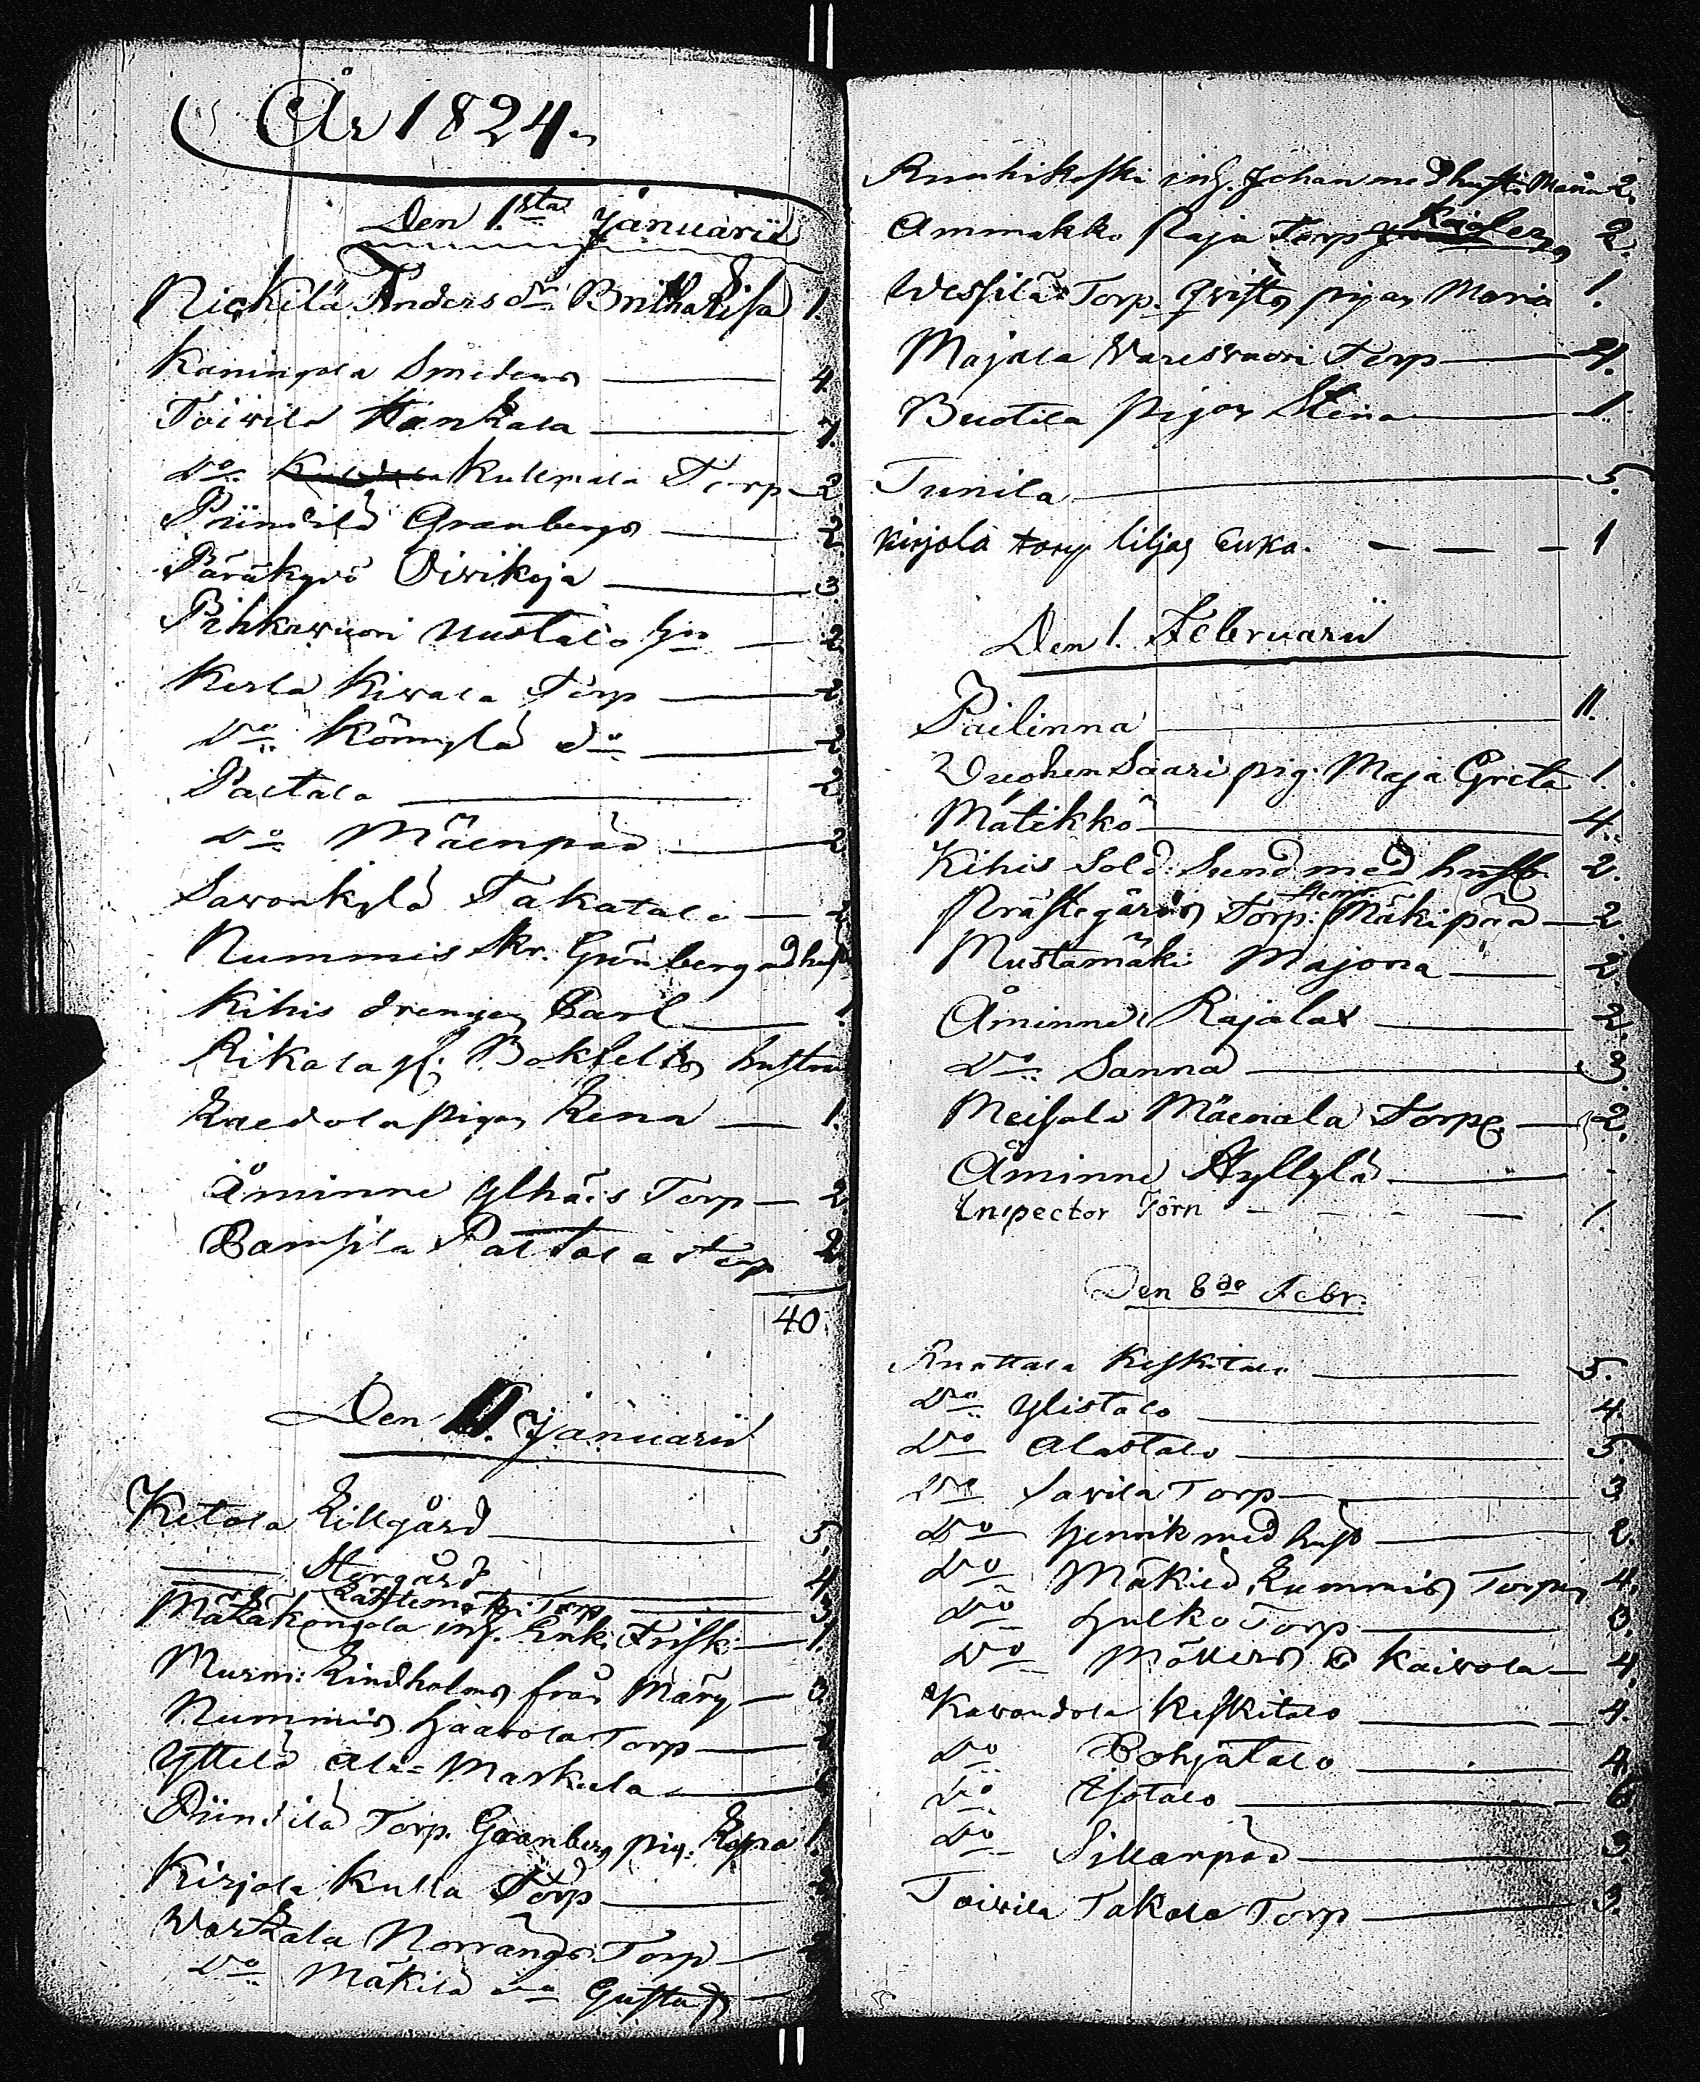 År 1824.
Den 1.sta Januarii
Nickilä Anders dr. Britha Lisa 1.
Kaningola Smedens 4.
Toivila Hankala 7.
Do Kullmala Torp 2
Pründilä Granbergs 2.
Päräkyrö Oivikoja 3.
Pihkavuori Uustalo 2
Kerla Kivala Torp 2
Do Könnylä do 2
Paltala 2
Do Mäenpää 2
Savonkylä Takatalo 2
Nummis Skr. Grönberg
Kihis drengen Carl 1.
Rikala hustru
pigan Lena 1.
Åminne Ylhäis Torp 2
Pattala Torp 2.
40.
Den 11. Januarii
Ketola Lillgård 5
Storgård 4
Torp 3
inh. Erik Frisk 1.
Murm: Lindholms från Märy 3
Nummis Haavola Torp 2
Yttelä Ala-Markula 6
Pründilä Torp. Granberg pig: 1.
Kirjola Kulla Torp
Norrängs Torp
Do Mäkilä do Gustaf
Ruuhikoski inh. Johan med hust. Maria 2.
Ammakko Raja Torp 2.
Vessilä Torp. Qvists pigan Maria 1.
Majala Varesvuori Torp 4.
Buotila pigan Stina 1.
Tunila 5.
Kirjola torp liljas Enka. 1
Den 1. Februarii
Pailinna 11.
Vuohensaari pig: Maja Greta 1.
Mätikkö 4.
Kihis Sold: Sund med hust. 2.
Prästegårds Torp: Mäkipää 2.
Mustamäki Majona 2.
Åminne Rajalax 2.
Do Sanna 3.
Meisala Mäenala Torp 2.
Åminne Hyllylä
Inspector Törn 1.
Den 8de Febr.
Knattala Keskitalo 5.
Do Ylistalo 4.
Do Alastalo 5.
Do Savila Torp 3
Do Henrik med hust 2.
Do Mäkilä Torpen 4.
Do Hulko Torp 3.
Do Möllers Kaivola 4.
Kavandola Keskitalo 4.
Do Bohjatalo 4.
Do Isotalo 6.
Do Sillanpää 3.
Toivila Takala Torp 3.